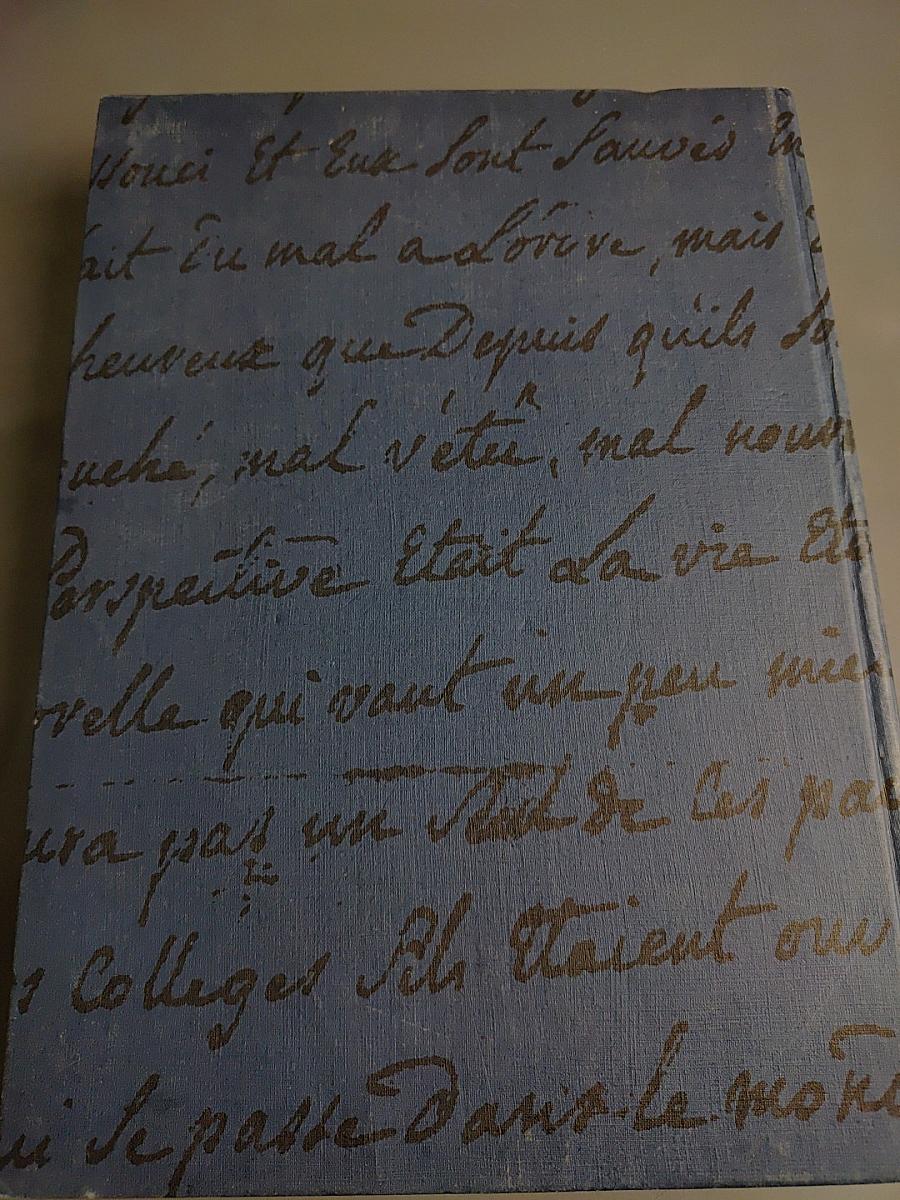 ssouci Et Eux Sont Sauvés En
ait Du mal a Lórive, mais
heureux que Depuis qu'ils So
uché, mal vétu, mal nourr
Perspective Etait La vie Ete
relle qui vaut un peu mie
ura pas un Seul de Ces par
s Colleges Sils Etaient ouv
ui Se passe Dans le mond